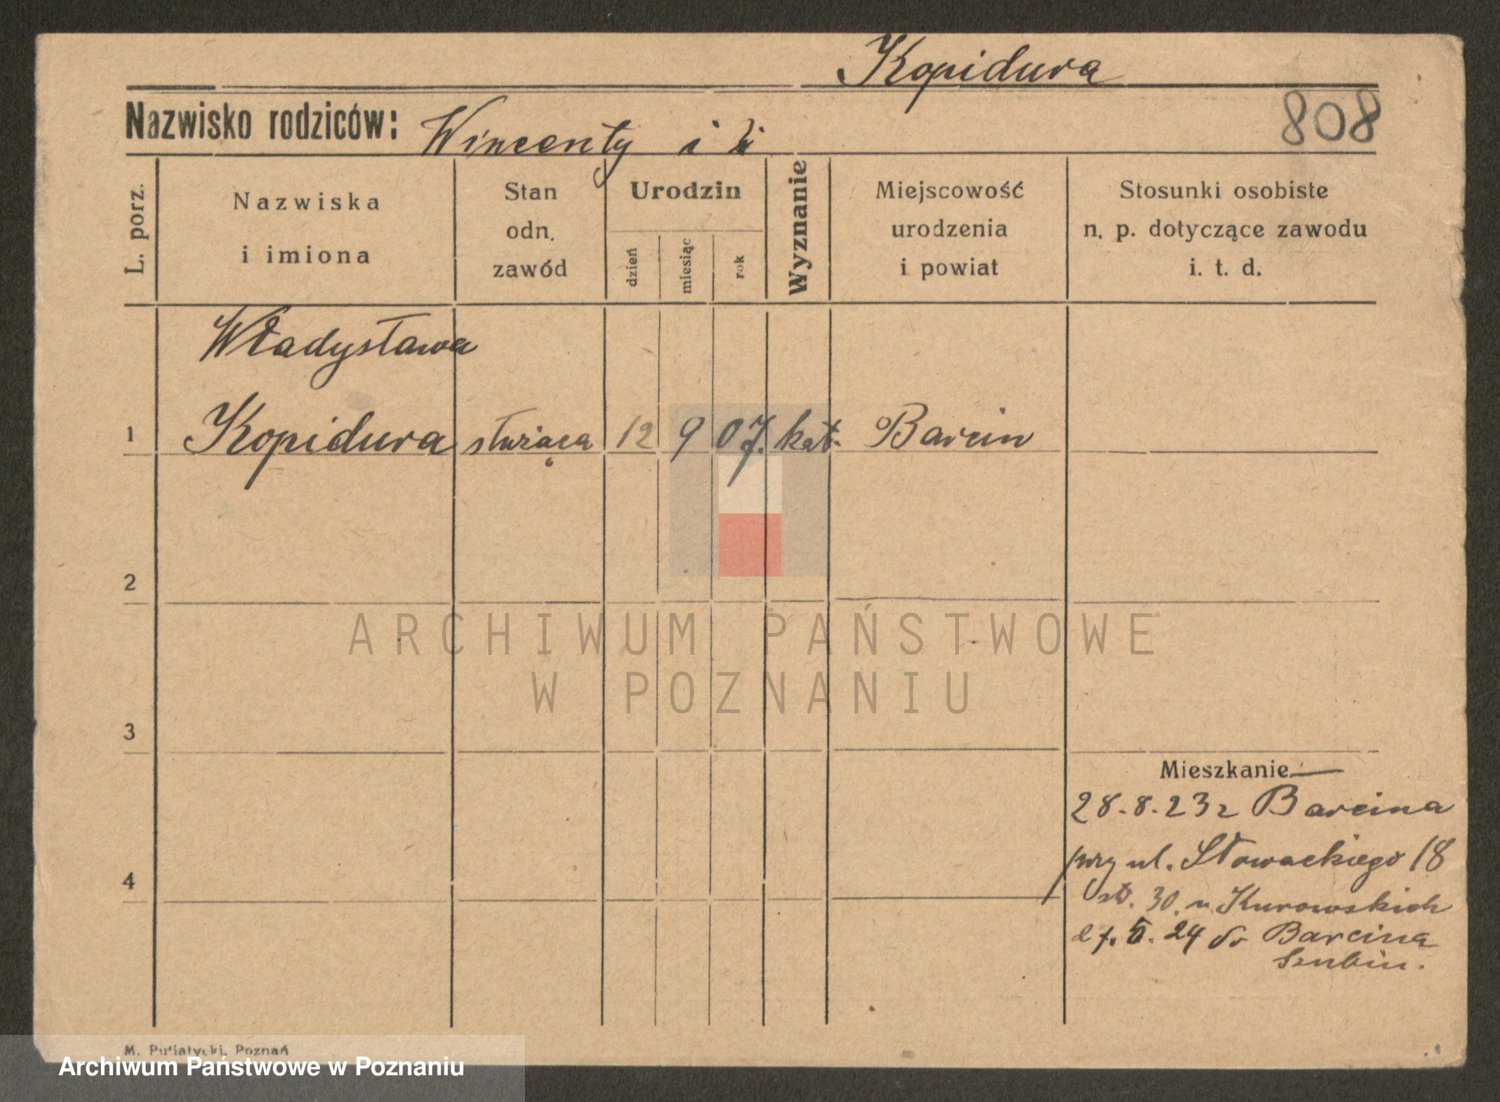 Kopidura
808
Nazwisko rodziców: Wincenty i
L. porz.
Nazwiska
i imiona
Stan
odn.
zawód
Urodzin
dzień
miesiąc
rok
Wyznanie
Miejscowość
urodzenia
i powiat
Stosunki osobiste
n. p. dotyczące zawodu
i. t. d.
Władysława
1 Kopidura służąca 12 9 07. kat. Barcin
2
ARCHIWUM PAŃSTWOWE
W POZNANIU
3
Mieszkanie
28.8.23 z Barcina
przy ul. Słowackiego 18
30. u Kurowskich
24 do Barcina
Szubin.
4
M. Putiatycki, Poznań
Archiwum Państwowe w Poznaniu